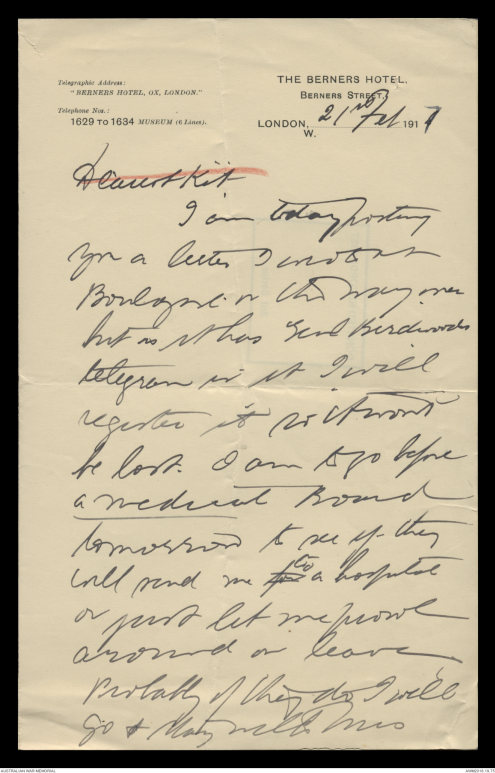 Telegraphic Address:
"BERNERS HOTEL, OX, LONDON."
Telephone Nos.:
1629 TO 1634 MUSEUM (6 Lines).
THE BERNERS HOTEL,
BERNERS STREET,
LONDON, 21st Feb 1917
W.
Dearest Kit
I am today posting
you a letter I wrote at
Boulogne on the way over
but as it has Genl Birdwoods
telegram in it I will
register it so it wont
be lost. I am to go before
a medical Board
tomorrow to see if they
will send me to a hospital
or just let me prowl
around on leave
Probably if they do I will
go & stay with Mrs
AUSTRALIAN WAR MEMORIAL